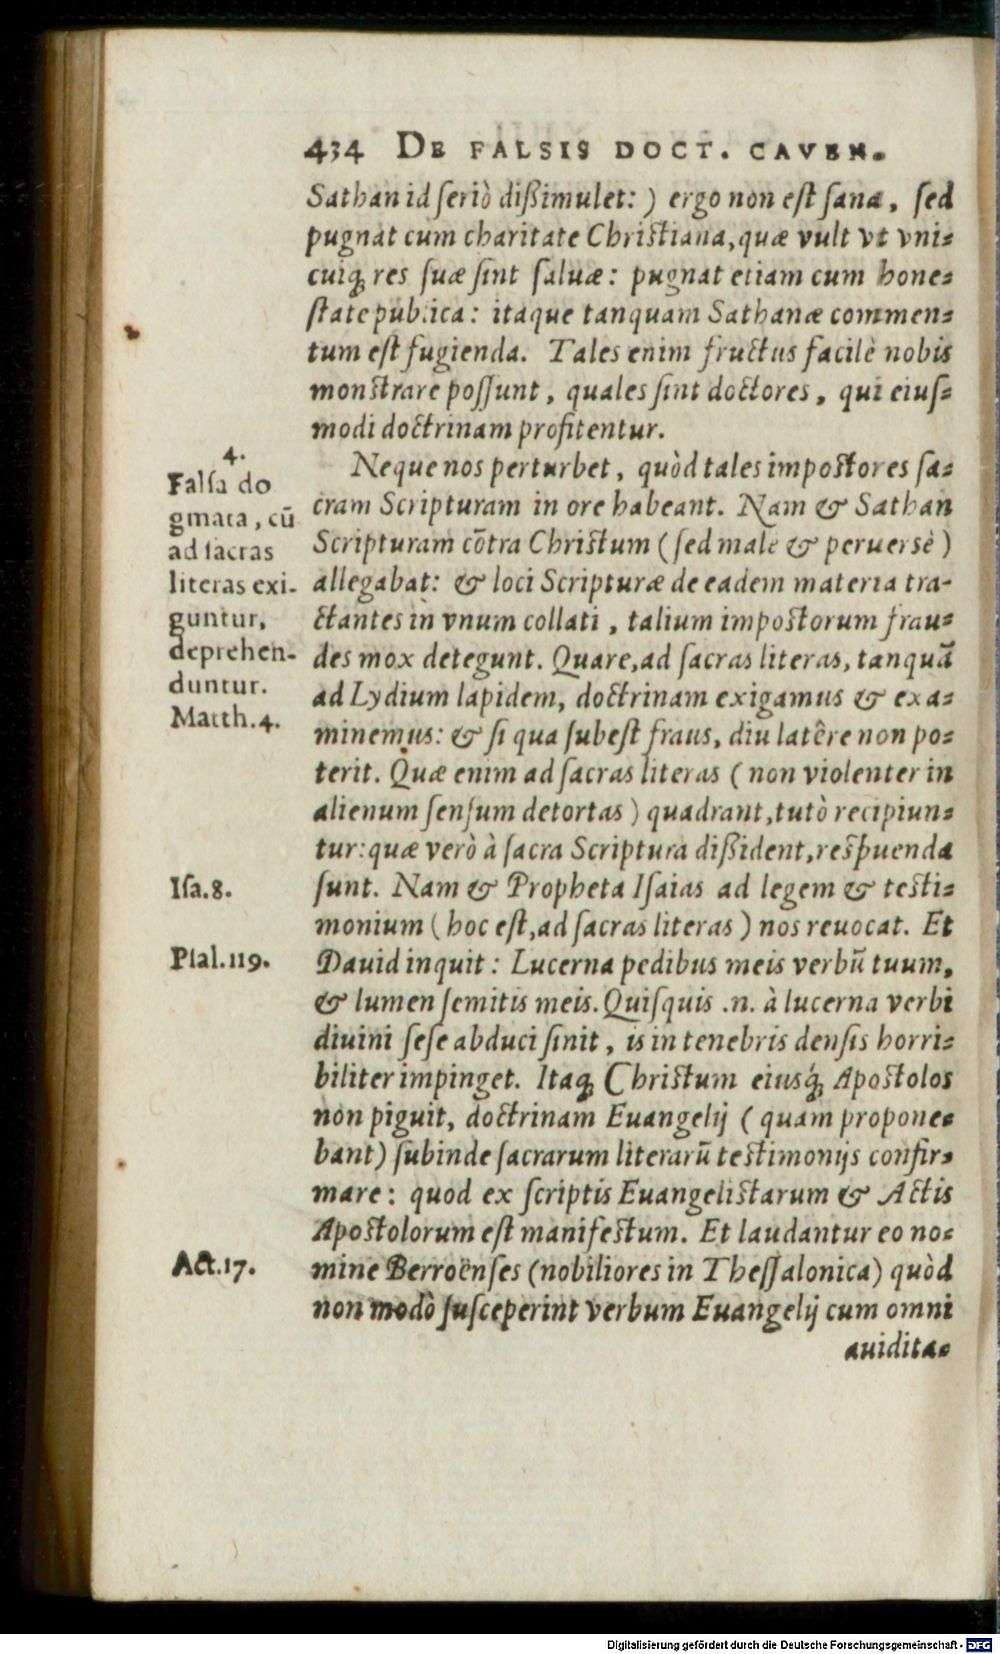 434 DE FALSIS DOCT. CAVEN.
Sathan id ſeriò dißimulet: ) ergo non eſt ſana, ſed
pugnat cum charitate Chriſtiana, quæ vult vt vni-
cuiq́; res ſuæ ſint ſaluæ: pugnat etiam cum hone-
ſtate publica: itaque tanquam Sathanæ commen-
tum eſt fugienda. Tales enim fructus facilè nobis
monſtrare poſſunt, quales ſint doctores, qui eiuſ-
modi doctrinam profitentur.
Neque nos perturbet, quòd tales impoſtores ſa-
cram Scripturam in ore habeant. Nam & Sathan
Scripturam cõtra Chriſtum (ſed malè & peruersè)
allegabat: & loci Scripturæ de eadem materia tra-
ctantes in vnum collati, talium impoſtorum frau-
des mox detegunt. Quare, ad ſacras literas, tanquã
ad Lydium lapidem, doctrinam exigamus & exa-
minemus: & ſi qua ſubeſt fraus, diu latêre non po-
terit. Quæ enim ad ſacras literas (non violenter in
alienum ſenſum detortas) quadrant, tutò recipiun-
tur: quæ verò à ſacra Scriptura dißident, reſpuenda
ſunt. Nam & Propheta Iſaias ad legem & teſti-
monium (hoc eſt, ad ſacras literas) nos reuocat. Et
Dauid inquit: Lucerna pedibus meis verbũ tuum,
& lumen ſemitis meis. Quiſquis .n. à lucerna verbi
diuini ſeſe abduci ſinit, is in tenebris denſis horri-
biliter impinget. Itaq; Chriſtum eiusq́; Apoſtolos
non piguit, doctrinam Euangelij (quam propone-
bant) ſubinde ſacrarum literarũ teſtimonijs confir-
mare: quod ex ſcriptis Euangeliſtarum & Actis
Apoſtolorum eſt manifeſtum. Et laudantur eo no-
mine Berroënſes (nobiliores in Theſſalonica) quòd
non modò ſuſceperint verbum Euangelij cum omni
auidita-
4.
Falſa do
gmata, cũ
ad ſacras
literas exi-
guntur,
deprehen-
duntur.
Matth.4.
Iſa.8.
Pſal.119.
Act.17.
Digitalisierung gefördert durch die Deutsche Forschungsgemeinschaft - DFG